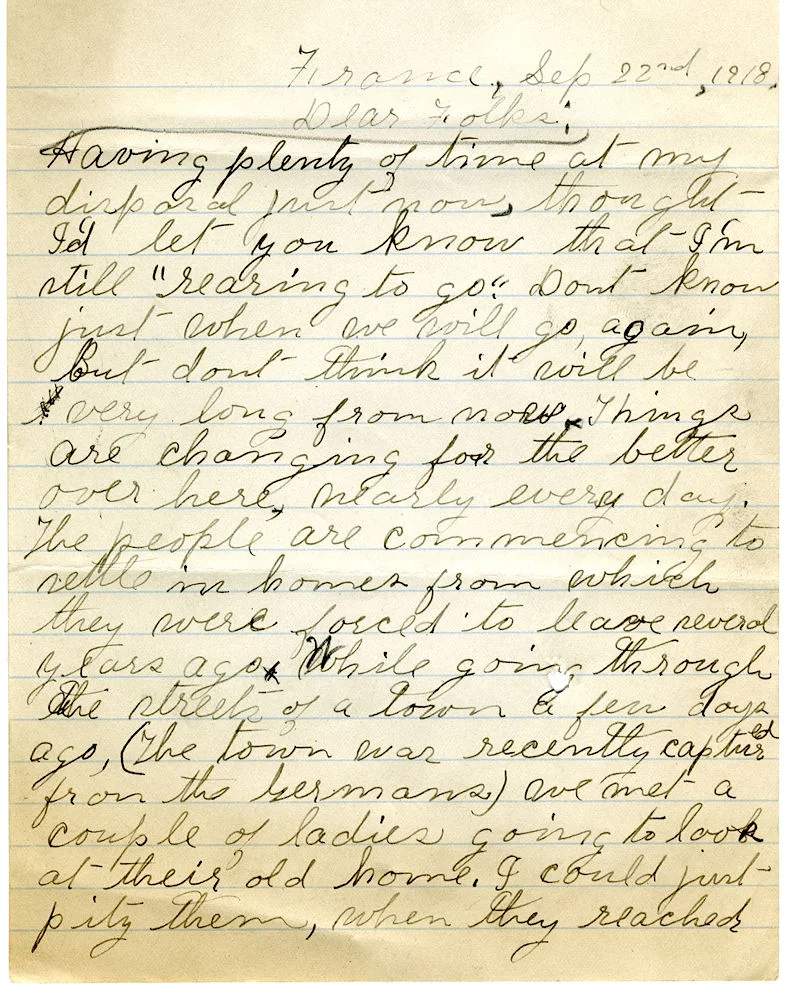 France, Sep 22nd, 1918.
Dear Folks:
Having plenty of time at my
disposal just now, thought
I'd let you know that I'm
still "rearing to go". Dont know
just when we will go, again,
But dont think it will be
very long from now. Things
are changing for the better
over here, nearly every day.
The people are commencing to
settle in homes from which
they were forced to leave several
years ago. While going through
the streets of a town a few days
ago, (The town was recently capture'd
from the Germans) we met a
couple of ladies going to look
at their old home. I could just
pity them, when they reached